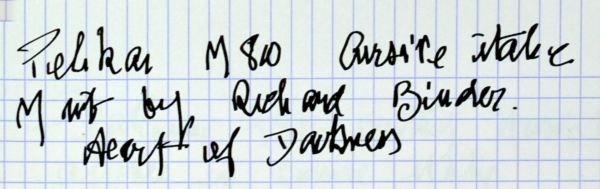 Pelikan M800 Cursive italic
M nib by Richard Binder.
Heart of Darkness